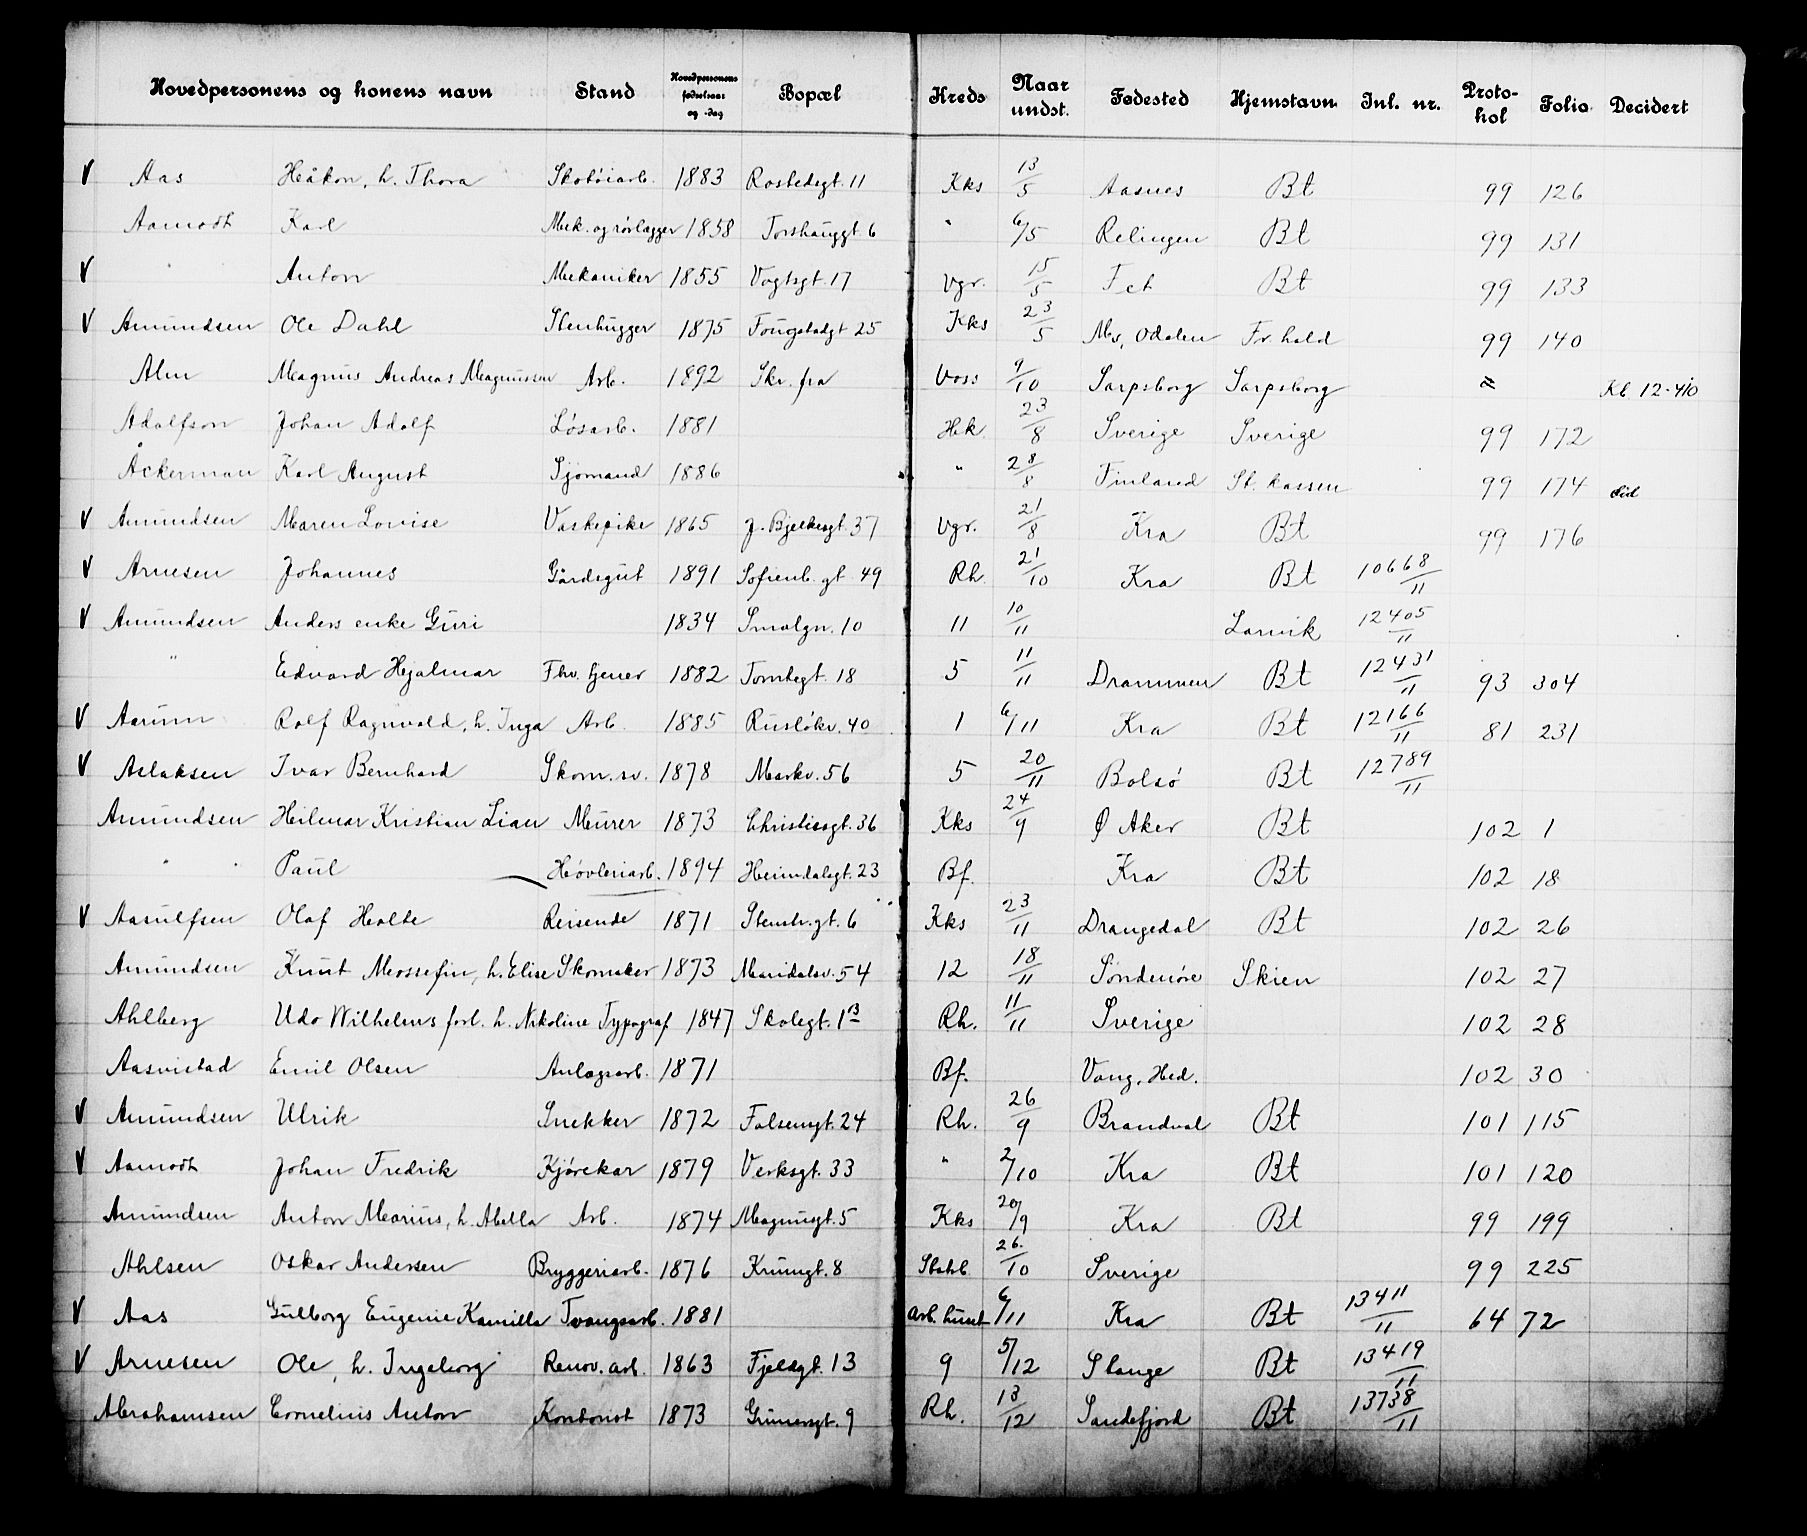 Hovedpersonens og konens navn Stand Hovedpersonens fødselsaar og -dag Bopæl Kreds Naar undst. Fødested Hjemstavn Inl. nr. Protokol Folio Decidert
V Aas Håkon, h. Thora Skotøiarb. 1883 Rostedsgt. 11 Kks 13/5 Aasnes Bt 99 126
Aamodt Karl Mek. og rørlægger 1858 Torshauggt 6 " 6/5 Relingen Bt 99 131
V " Anton Mekaniker 1855 Vogtsgt. 17 Vgr. 15/5 Fet Bt 99 133
V Amundsen Ole Dahl Stenhugger 1875 Fougstadgt 25 Kks 23/5 Ms, Odalen Fr.hald 99 140
Alm Magnus Andreas Magnussen Arb. 1892 Skr. fra Voss 9/10 Sarpsborg Sarpsborg Kl. 12-4/10
Adolfson Johan Adolf Løsarb. 1881 Hek. 23/8 Sverige Sverige 99 172
Åckerman Karl August Sjømand 1886 " 28/8 Finland St. kassen 99 174
V Amundsen Maren Lovise Vaskepike 1865 J. Bjelkesgt. 37 Vgr. 21/8 Kra Bt 99 176
V Arnesen Johannes Gårdsgut 1891 Sofienb. gt. 49 Rh. 21/10 Kra Bt 10668/11
V Amundsen Anders enke Guri 1834 Smalgn. 10 11 10/11 Larvik 12405/11
" Edvard Hjalmar Fhv. tjener 1882 Tomtegt. 18 5 11/11 Drammen Bt 12431/11 93 304
V Aarum Rolf Ragnvald, h. Inga Arb. 1885 Rusløkv. 40 1 6/11 Kra Bt 12166/11 81 231
V Aslaksen Ivar Bernhard Skom.sv. 1878 Markv. 56 5 20/11 Bolsø Bt 12789/11
Amundsen Heilmar Kristian Lian Murer 1873 Christiesgt. 36 Kks 24/9 Ø Aker Bt 102 1
" Paul Høvleriarb. 1894 Heimdalsgt. 23 Bf. Kra Bt 102 18
V Aasulfsen Olaf Holte Reisende 1871 Stenstr.gt. 6 Kks 23/11 Drangedal Bt 102 26
Amundsen Knut Mossefin, h. Elise Skomaker 1873 Maridalsv. 54 12 18/11 Søndmøre Skien 102 27
Ahlberg Udo Wilhelms forl. h. Nikoline Typograf 1847 Skolegt. 1B Rh. 11/11 Sverige 102 28
Aasvistad Emil Olsen Anlægsarb. 1871 Bf. Vang, Hed. 102 30
V Amundsen Ulrik Snekker 1872 Falsensgt. 24 Rh. 26/9 Brandval Bt 101 115
V Aamodt Johan Fredrik Kjørekar 1879 Verksgt. 33 " 2/10 Kra Bt 101 120
Amundsen Anton Marius, h. Abella Arb. 1874 Magnusgt. 5 Kks 20/9 Kra Bt 99 199
Ahlsen Oskar Andersen Bryggeriarb. 1876 Krumgt. 8 26./10 Sverige 99 225
V Aas Gulborg Eugenie Kamilla Tvangsarb. 1881 Arb. huset 6/11 Kra Bt 13411/11 64 72
V Arnesen Ole, h. Ingeborg Renov. arb. 1863 Fjeldgt. 13 9 5/12 Stange Bt 13419/11
Abrahamsen Cornelius Anton Kontorist 1873 Grünersgt. 9 Rh. 13/12 Sandefjord Bt 13738/11